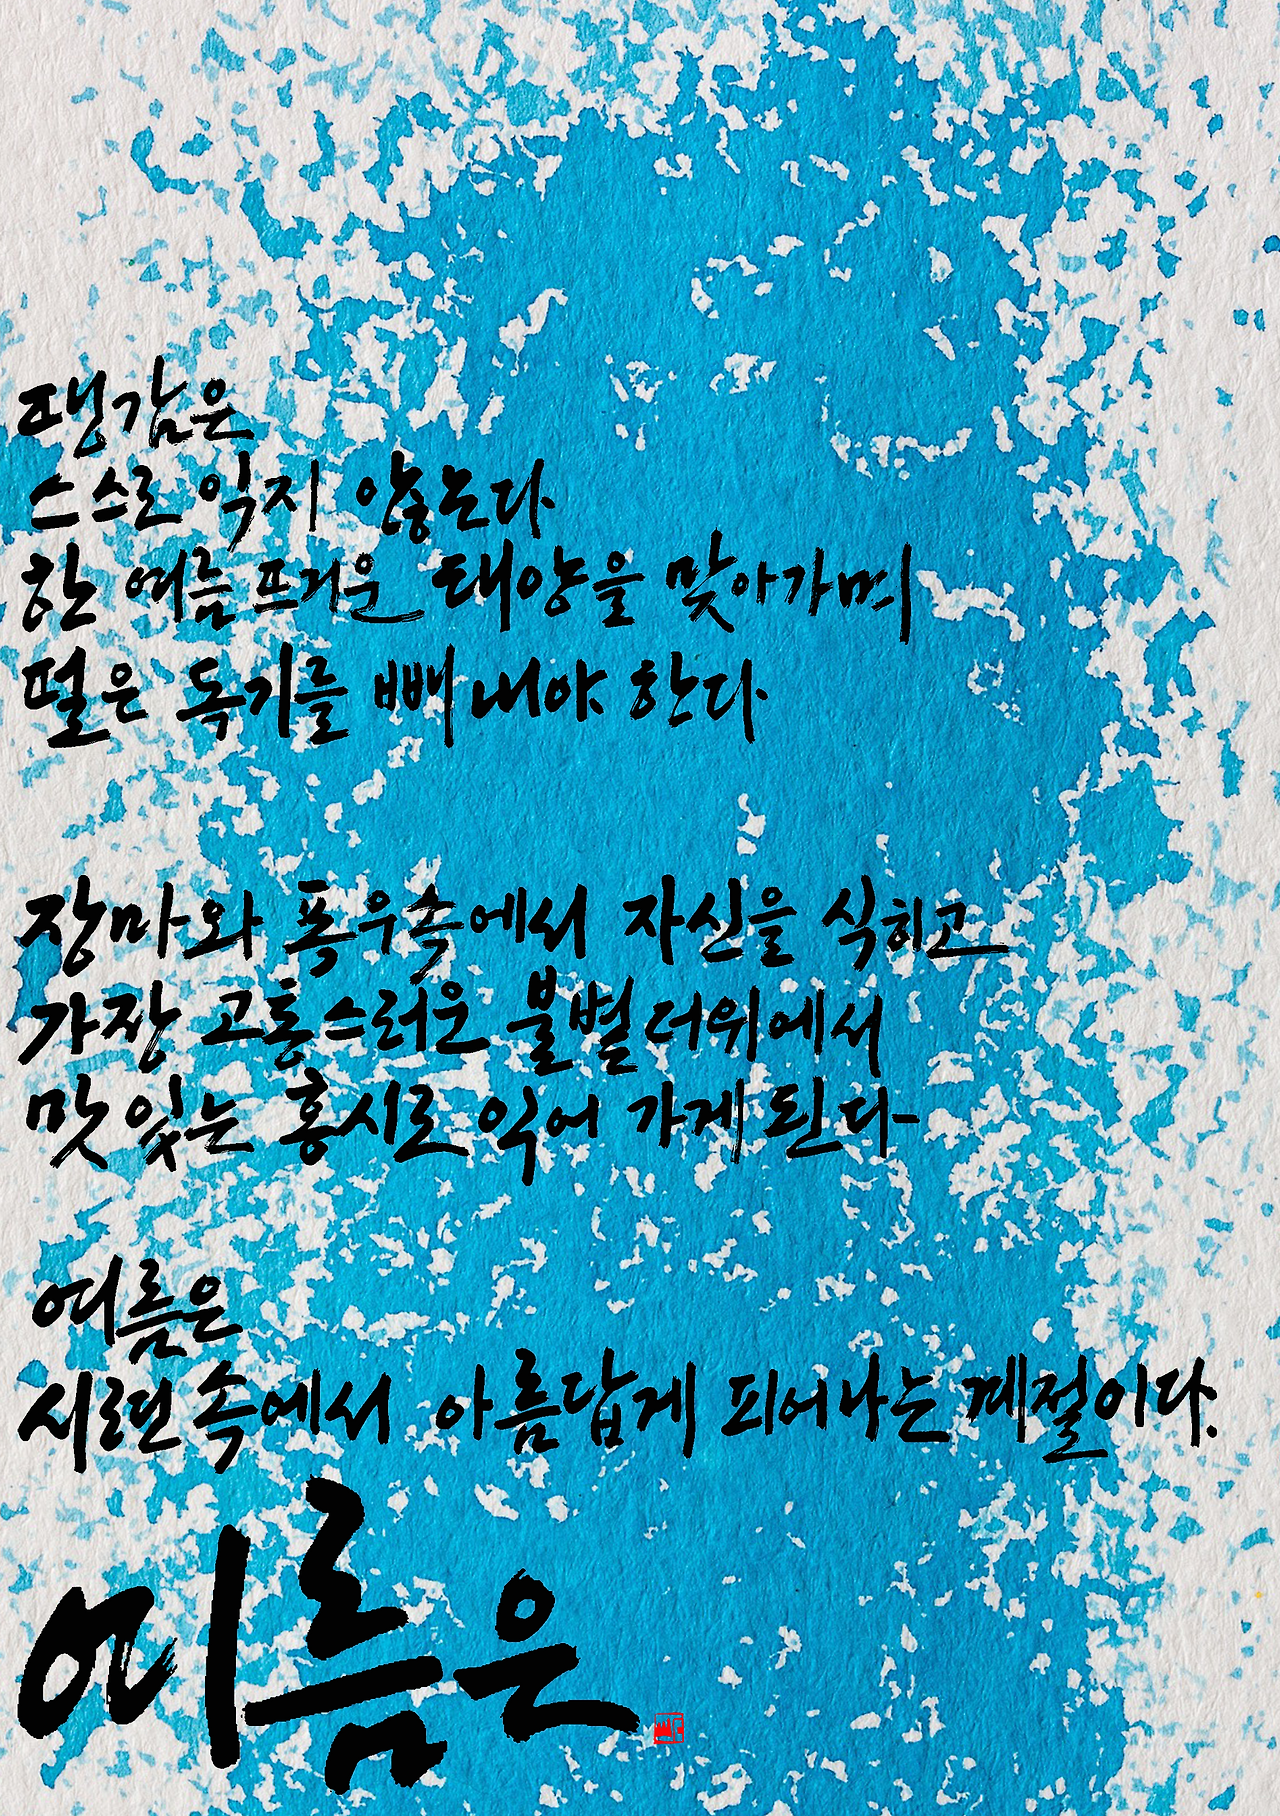 땡감은
스스로 익지 않는다
한 여름 뜨거운 태양을 맞아가며
떫은 독기를 빼 내야 한다
장마와 폭우속에서 자신을 식히고
가장 고통스러운 불볕더위에서
맛있는 홍시로 익어 가게 된다
여름은
시련속에서 아름답게 피어나는 계절이다.
여름은